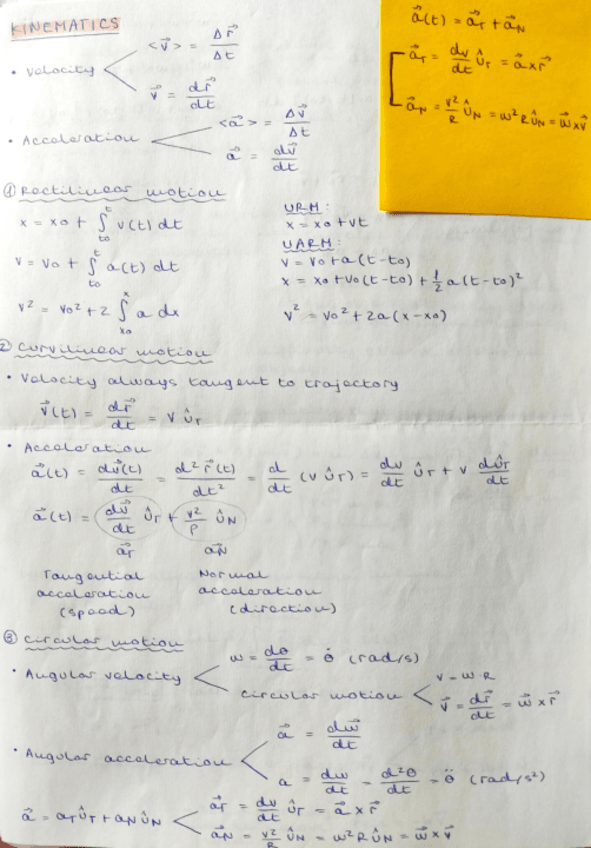 KINEMATICS
• Velocity
<v⃗> = Δr⃗/Δt
v⃗ = dr⃗/dt
• Acceleration
<a⃗> = Δv⃗/Δt
a⃗ = dv⃗/dt
a⃗(t) = a⃗T + a⃗N
a⃗T = dv/dt ûT = a⃗ x r⃗
a⃗N = v²/R ûN = ω²R ûN = ω⃗ x v⃗
① Rectilinear motion
x = xo + ∫_to^t v(t) dt
v = vo + ∫_to^t a(t) dt
v² = vo² + 2 ∫_xo^x a dx
URM:
x = xo + vt
UARM:
v = vo + a(t-to)
x = xo + vo(t-to) + 1/2 a(t-to)²
v² = vo² + 2a(x-xo)
② Curvilinear motion
• Velocity always tangent to trajectory
v⃗(t) = dr⃗/dt = v ûT
• Acceleration
a⃗(t) = dv⃗(t)/dt = d²r⃗(t)/dt² = d/dt (v ûT) = dv/dt ûT + v dûT/dt
a⃗(t) = dv⃗/dt ûT + v²/ρ ûN
a⃗T a⃗N
Tangential acceleration (speed)
Normal acceleration (direction)
③ Circular motion
• Angular velocity
ω = dθ/dt = θ̇ (rad/s)
circular motion
v = ω·R
v⃗ = dr⃗/dt = ω⃗ x r⃗
• Angular acceleration
a⃗ = dω⃗/dt
a = dω/dt = d²θ/dt = θ̈ (rad/s²)
a⃗ = aT ûT + aN ûN
a⃗T = dv/dt ûT = a⃗ x r⃗
a⃗N = v²/R ûN = ω²R ûN = ω⃗ x v⃗